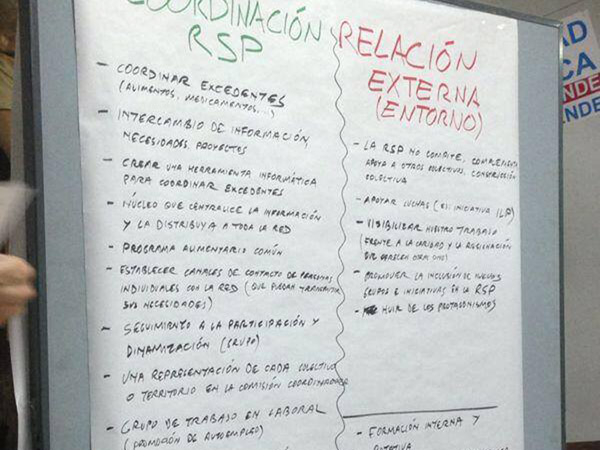 COORDINACIÓN
RSP
- COORDINAR EXCEDENTES
(ALIMENTOS, MEDICAMENTOS,...)
- INTERCAMBIO DE INFORMACIÓN,
NECESIDADES, PROYECTOS
- CREAR UNA HERRAMIENTA INFORMÁTICA
PARA COORDINAR EXCEDENTES
- NÚCLEO QUE CENTRALICE LA INFORMACIÓN
Y LA DISTRIBUYA A TODA LA RED
- PROGRAMA ALIMENTARIO COMÚN
- ESTABLECER CANALES DE CONTACTO DE PERSONAS
INDIVIDUALES CON LA RED (QUE PUEDAN TRANSMITIR
SUS NECESIDADES)
- SEGUIMIENTO A LA PARTICIPACIÓN Y
DINAMIZACIÓN (GRUPO)
- UNA REPRESENTACIÓN DE CADA COLECTIVO
O TERRITORIO EN LA COMISIÓN COORDINADORA
- GRUPO DE TRABAJO EN LABORAL
(PROMOCIÓN DE AUTOEMPLEO)
RELACIÓN
EXTERNA
(ENTORNO)
- LA RSP NO COMPITE, COMPLEMENTA
APOYA A OTROS COLECTIVOS, CONSTRUCCIÓN
COLECTIVA
- APOYAR LUCHAS (EJ: INICIATIVA ILP)
- VISIBILIZAR NUESTRO TRABAJO
(FRENTE A LA CARIDAD Y LA RESIGNACIÓN
QUE OFRECEN OTRAS ONG)
- PROMOVER LA INCLUSIÓN DE NUEVOS
GRUPOS E INICIATIVAS EN LA RSP
- HUIR DE LOS PROTAGONISMOS
- FORMACIÓN INTERNA Y
AD
ICA
ENDE
ENDE